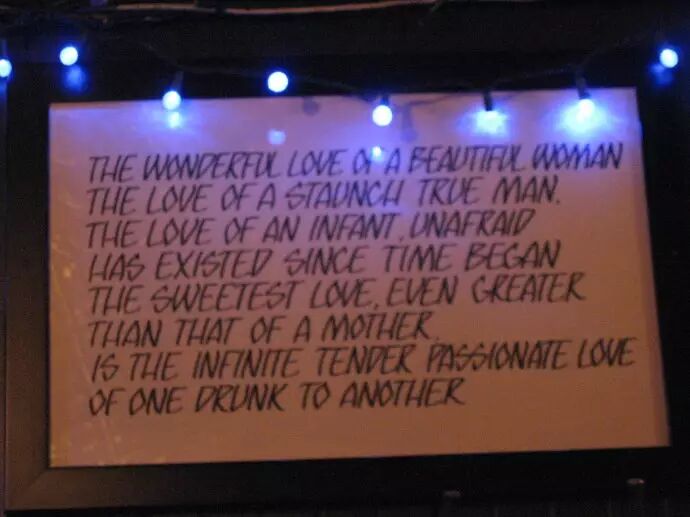 THE WONDERFUL LOVE OF A BEAUTIFUL WOMAN
THE LOVE OF A STAUNCH TRUE MAN.
THE LOVE OF AN INFANT, UNAFRAID
HAS EXISTED SINCE TIME BEGAN
THE SWEETEST LOVE, EVEN GREATER
THAN THAT OF A MOTHER,
IS THE INFINITE TENDER PASSIONATE LOVE
OF ONE DRUNK TO ANOTHER